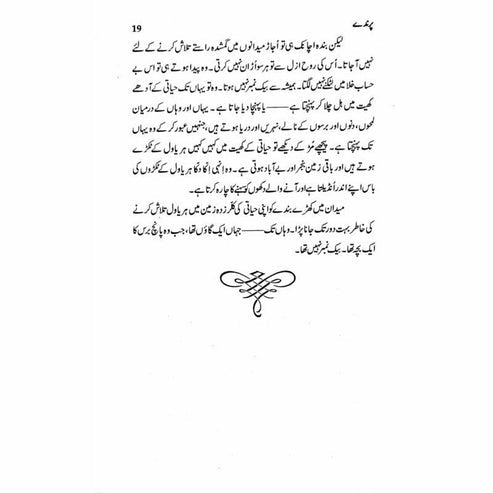 پرندے 19
لیکن بندہ اچانک ہی تو اُجاڑ میدانوں میں گمشدہ راستے تلاش کرنے کے لئے
نہیں آ جاتا۔ اُس کی روح ازل سے تو ہر سو اُڑان نہیں کرتی۔ وہ پیدا ہوتے ہی تو اس بے
حساب خلا میں لٹکنے نہیں لگتا۔ ہمیشہ سے بیک نمبر نہیں ہوتا۔ وہ تو یہاں تک حیاتی کے آدھے
کھیت میں ہل چلا کر پہنچتا ہے —— یا پہنچا دیا جاتا ہے۔ یہاں اور وہاں کے درمیان
لمحوں، دنوں اور برسوں کے نالے، نہریں اور دریا ہوتے ہیں، جنہیں عبور کر کے وہ یہاں
تک پہنچتا ہے۔ پیچھے مُڑ کے دیکھے تو حیاتی کے کھیت میں کہیں کہیں ہریاول کے ٹکڑے
ہوتے ہیں اور باقی زمین بنجر اور بے آباد ہوتی ہے۔ وہ انہی اِکا دُکا ہریاول کے ٹکڑوں کی
باس اپنے اندر اُنڈیلتا ہے اور آنے والے دکھوں کو سہنے کا چارہ کرتا ہے۔
میدان میں کھڑے بندے کو اپنی حیاتی کی کلر زدہ زمین میں ہریاول تلاش کرنے
کی خاطر بہت دور تک جانا پڑا۔ وہاں تک —— جہاں ایک گاؤں تھا، جب وہ پانچ برس کا
ایک بچہ تھا۔ بیک نمبر نہیں تھا۔